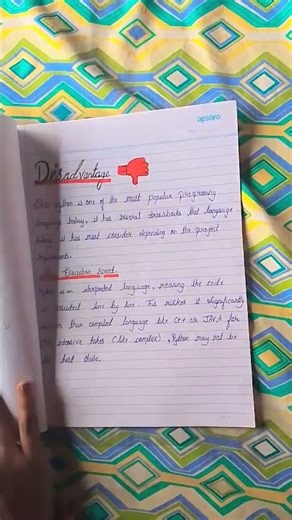 apsara
Disadvantage
While Python is one of the most popular Programing
language today, it has several drawbacks that language
today it has must consider depending on the project
requirements.
Execution Speed
Python is an interpreted language, meaning the code
is executed line by line. This makes it significantly
slower than compiled language like C++ or JAVA for
intensive tasks (like complex), Python may not be
the best choice.